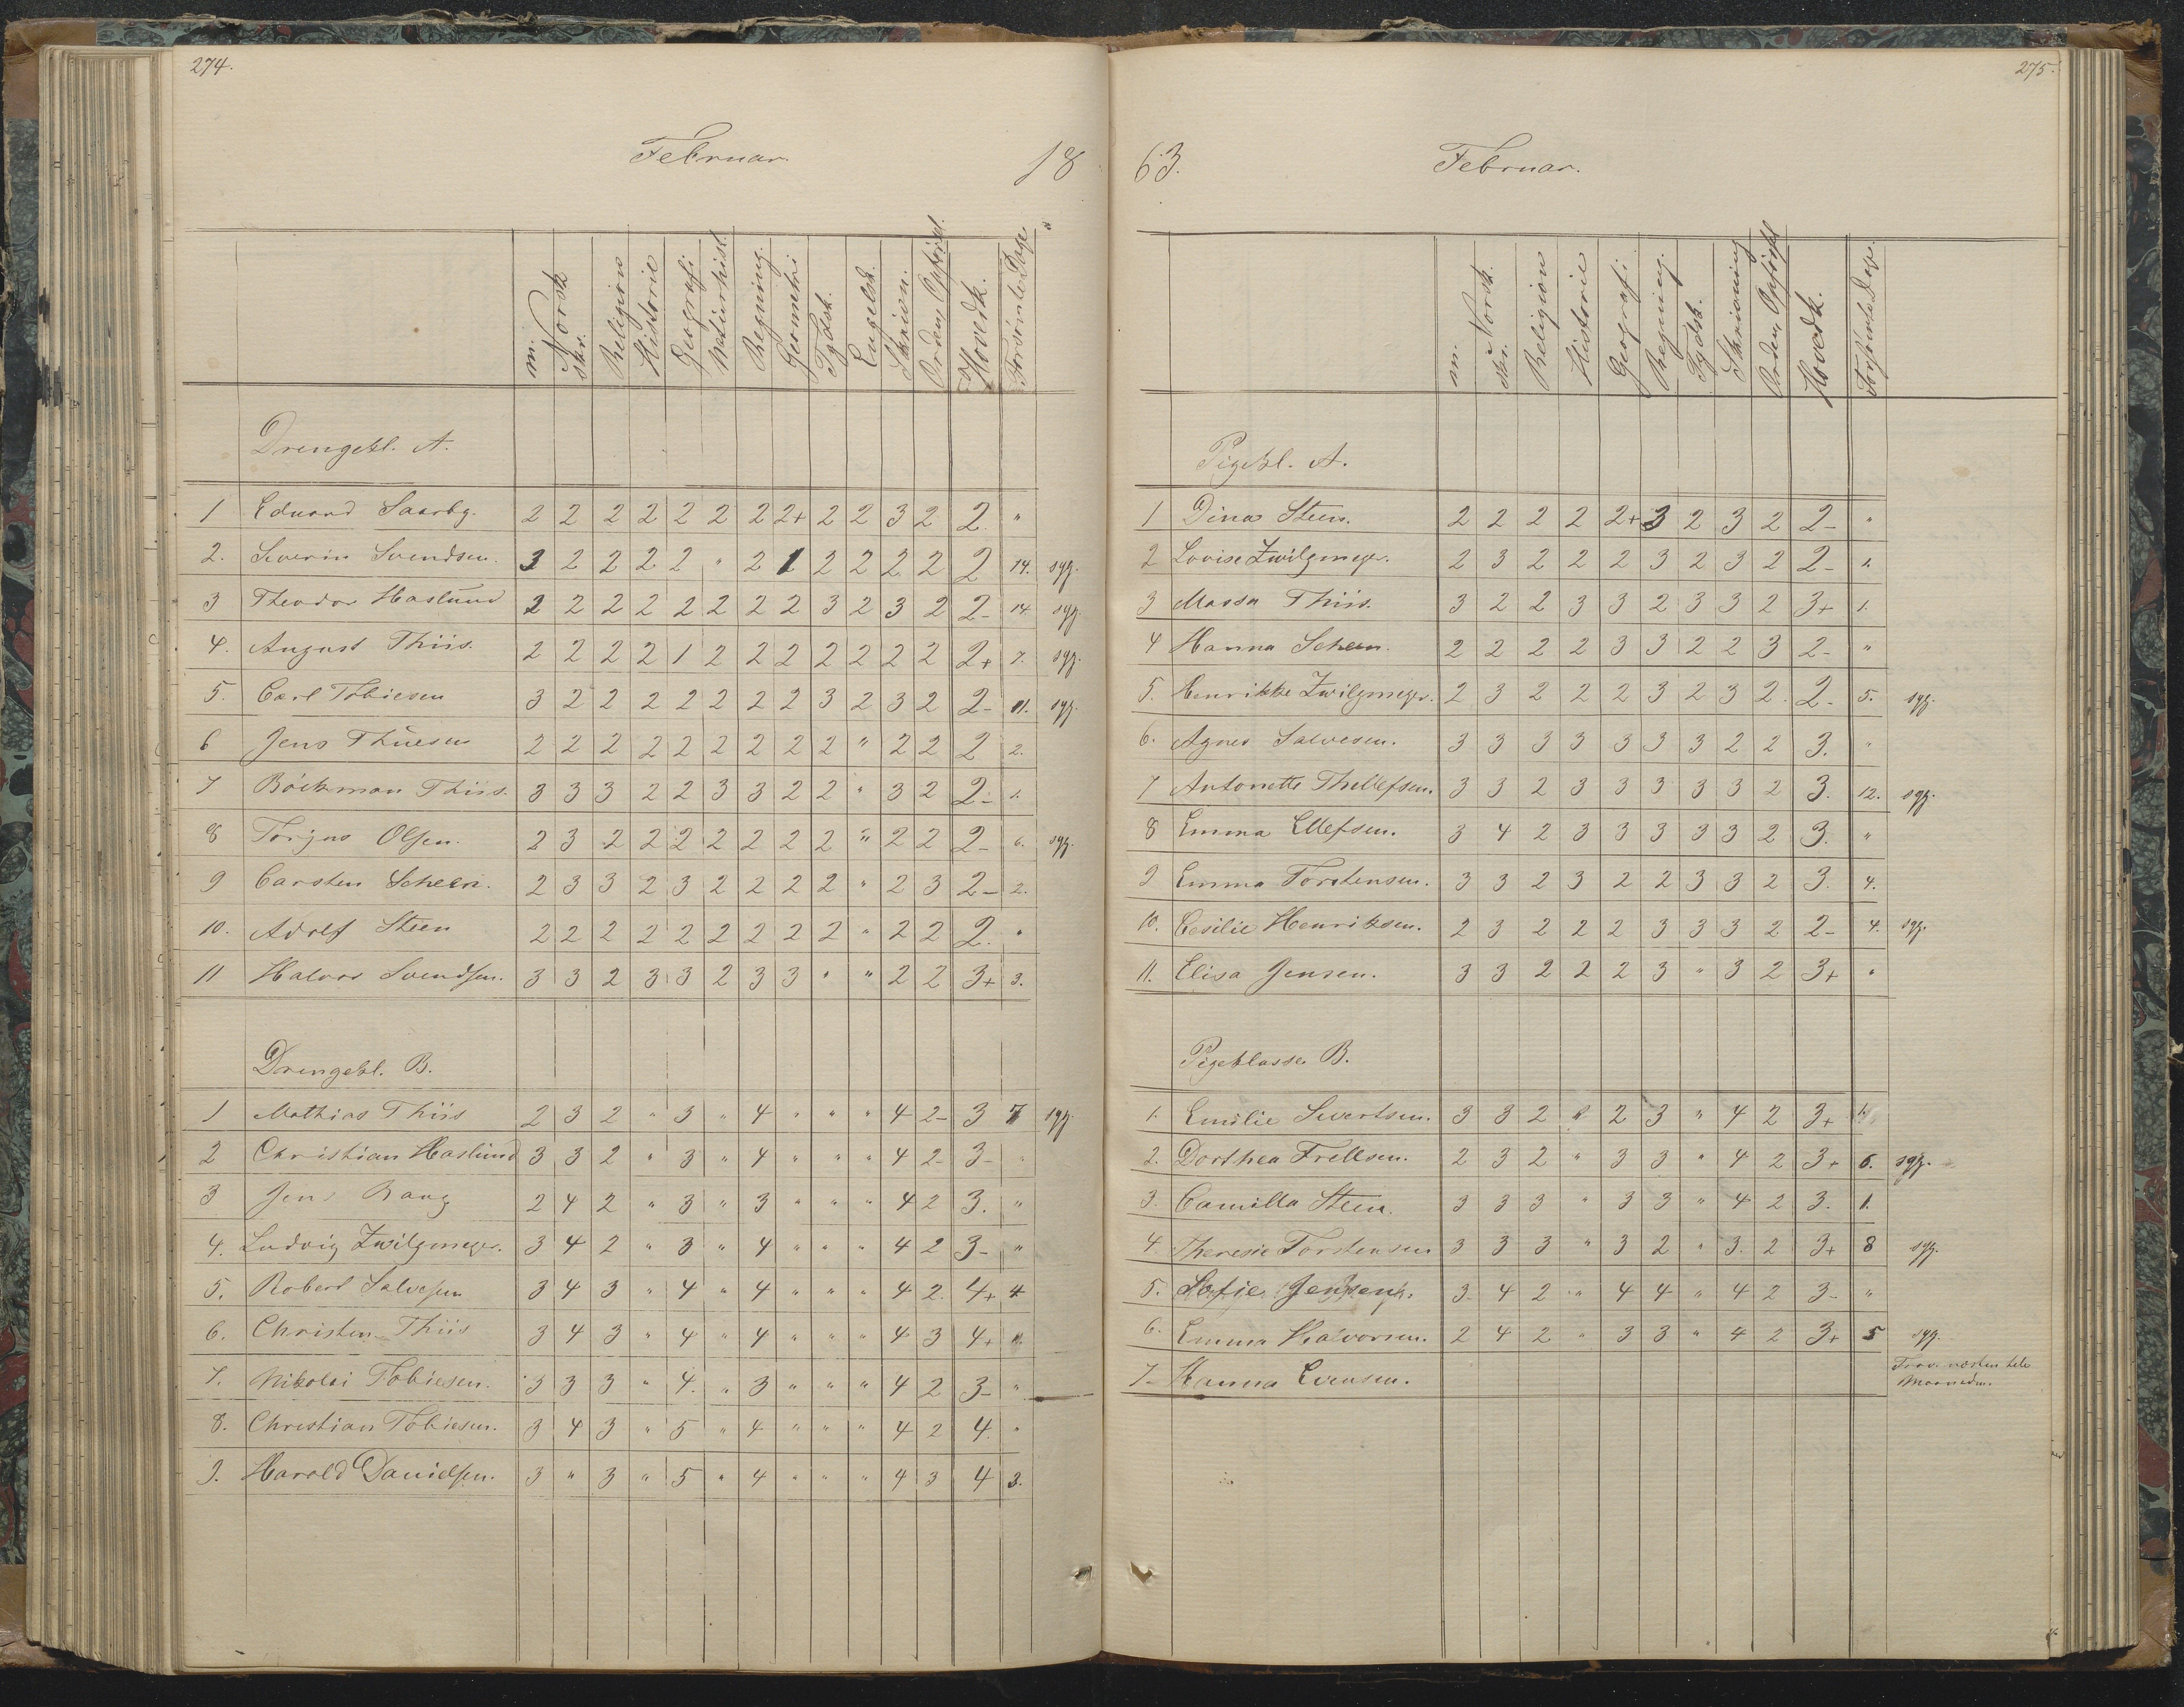 274.
Februar.
18
m. Norsk skr. Religion Historie Geografi Naturhist. Regning. Geometri Tydsk. Engelsk. Skrivn. Orden, Opførsel. Hovedk. Forsømte Dage
Drengekl. A.
1 Eduard Saarbg. 2 2 2 2 2 2 2 2+ 2 2 3 2 2. "
2. Severin Svendsen. 3 2 2 2 2 " 2 1 2 2 2 2 2 14. syg.
3 Theodor Haslund 2 2 2 2 2 2 2 2 3 2 3 2 2- 14 syg.
4. August Thiis. 2 2 2 2 1 2 2 2 2 2 2 2 2+ 7. syg.
5. Carl Tobiesen 3 2 2 2 2 2 2 2 3 2 3 2 2- 11. syg.
6 Jens Thuesen 2 2 2 2 2 2 2 2 2 " 2 2 2 2.
7 Böckman Thiis. 3 3 3 2 2 3 3 2 2 " 3 2 2- 1.
8 Torjus Olsen. 2 3 2 2 2 2 2 2 2 " 2 2 2- 6. syg.
9 Carsten Scheen. 2 3 3 2 3 2 2 2 2 " 2 3 2- 2.
10. Adolf Steen 2 2 2 2 2 2 2 2 2 " 2 2 2. "
11 Halvor Svendsen. 3 3 2 3 3 2 3 3 " " 2 2 3+ 3.
Drengekl. B.
1 Mathias Thiis 2 3 2 " 3 " 4 " " " 4 2- 3 7 syg.
2 Christian Haslund 3 3 2 " 3 " 4 " " " 4 2- 3- "
3 Jens Bang 2 4 2 " 3 " 3 " " " 4 2 3. "
4. Ludvig Zwilgmeyer. 3 4 2 " 3 " 4 " " " 4 2 3- "
5. Robert Salvesen 3 4 3 " 4 " 4 " " " 4 2. 4+ 4
6. Christen Thiis 3 4 3 " 4 " 4 " " " 4 3 4+
7. Nikolai Tobiesen. 3 3 3 " 4. " 3 " " " 4 2 3- "
8. Christian Tobiesen. 3 4 3 " 5 " 4 " " " 4 2 4. "
9. Harald Danielsen. 3 " 3 " 5 " 4 " " " 4 3 4 3.
275.
63.
Februar.
m. Norsk. skr. Religion Historie Geografi Regning. Tydsk. Skrivning Orden, Opførsel Hovedk. Forsømte Dage.
Pigekl. A.
1 Dina Steen. 2 2 2 2 2+ 3 2 3 2 2- "
2 Lovise Zwilgmeyer. 2 3 2 2 2 3 2 3 2 2- 1.
3 Massa Thiis. 3 2 2 3 3 2 3 3 2 3+ 1.
4 Hanna Scheen. 2 2 2 2 3 3 2 2 3 2- "
5. Henrikke Zwilgmeyer. 2 3 2 2 2 3 2 3 2. 2- 5. syg.
6. Agnes Salvesen. 3 3 3 3 3 3 3 2 2 3. "
7 Antonette Thellefsen. 3 3 2 3 3 3 3 3 2 3. 12. syg.
8 Emma Ellefsen. 3 4 2 3 3 3 3 3 2 3. "
9 Emma Torstensen. 3 3 2 3 2 2 3 3 2 3. 4.
10. Cesilie Henriksen. 2 3 2 2 2 3 3 3 2 2- 4. syg.
11. Elisa Jensen. 3 3 2 2 2 3 " 3 2 3+ "
Pigeklasse B.
1. Emilie Sivertsen. 3 3 2 " 2 3 " 4 2 3+ 1.
2. Dorthea Frellsen. 2 3 2 " 3 3 " 4 2 3+ 6. syg.
3. Camilla Steen. 3 3 3 " 3 3 " 4 2 3. 1.
4. Theresie Torstensen 3 3 3 " 3 2 " 3. 2 3+ 8 syg.
5. Sofie Jensen. 3- 4 2 " 4 4 " 4 2 3- "
6. Emma Halvorsen. 2 4 2 " 3 3 " 4 2 3+ 5 syg.
7. Hanna Evensen. Frav. næsten hele
Maaneden.